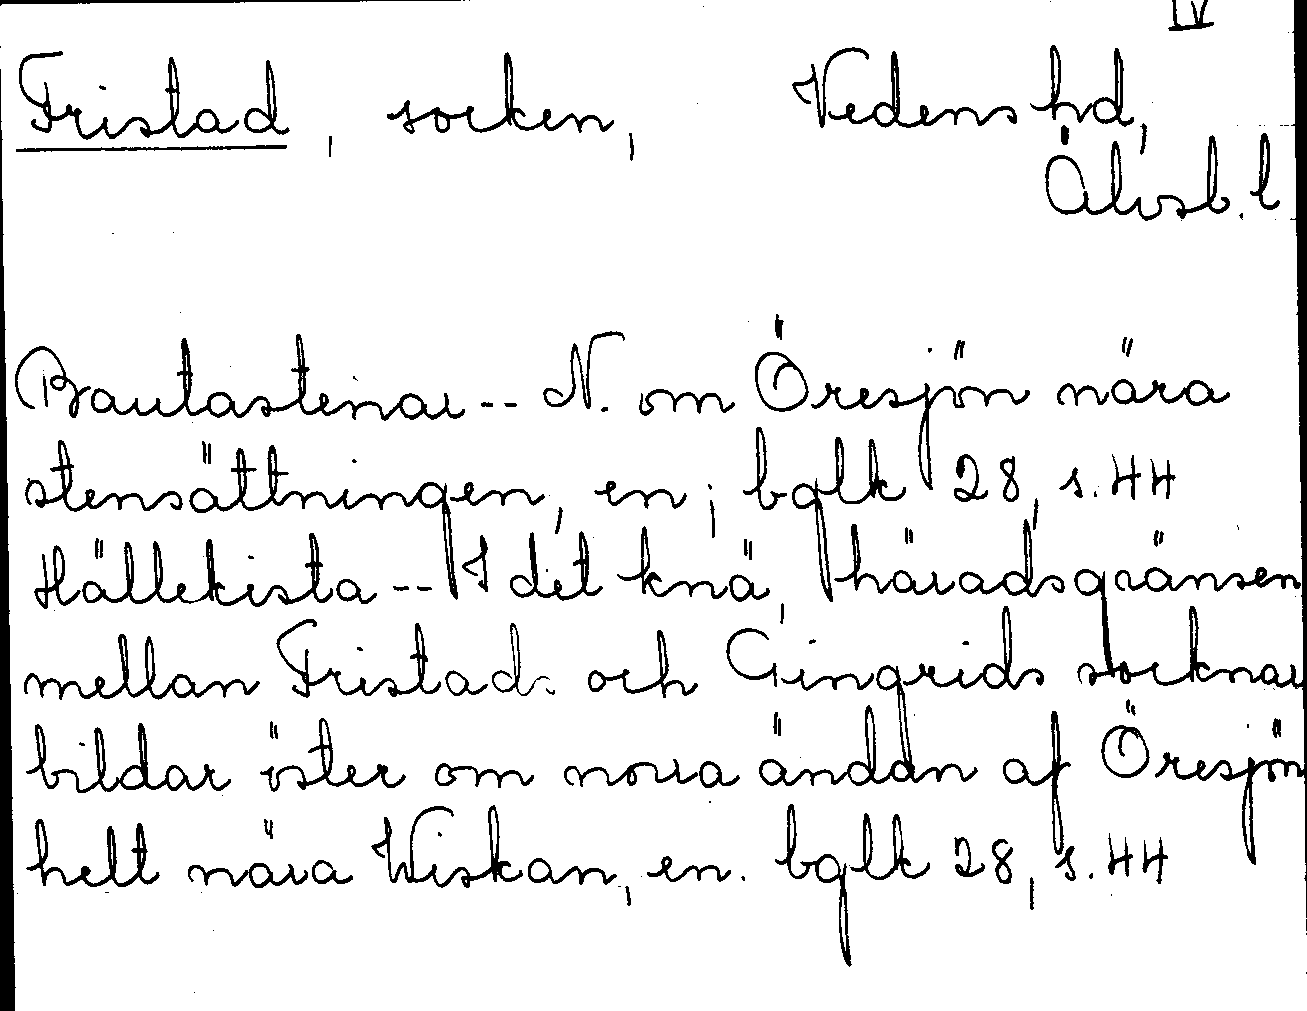 IV
Fristad, socken, Vedens hd,
Älvsb. l
Bautastenar -- N. om Öresjön nära
stensättningen, en; bglk 28, s. 44
Hällekista -- I det knä, häradsgränsen
mellan Fristads och Gingrids socknar
bildar öster om norra ändan af Öresjön
helt nära Wiskan, en. bglk 28, s. 44